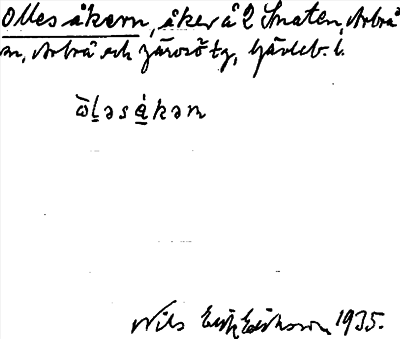 Olles åkern, åker å 2 Snaten, Arbrå
sn, Arbrå och Järvsö tg, Gävleb. l.
ω̄ḷəsákəṇ
Nils Erik Eriksson 1935.